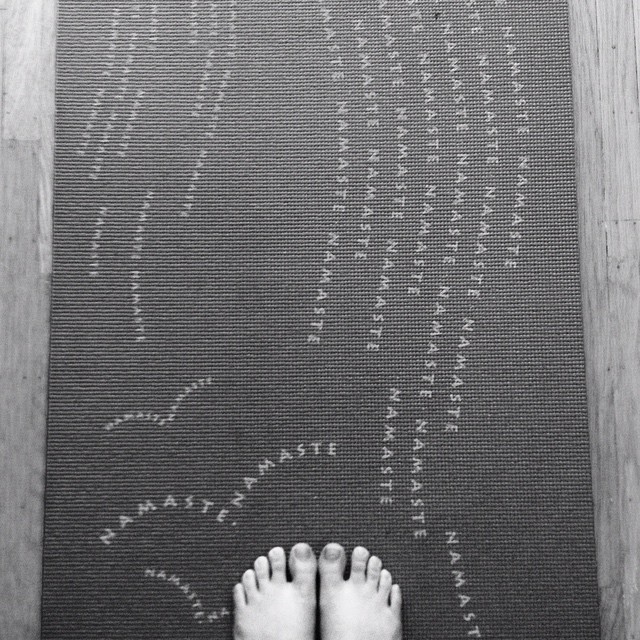 NAMASTE NAMASTE
NAMASTE NAMASTE
NAMASTE NAMASTE
NAMASTE
NAMASTE
NAMASTE
NAMASTE
NAMASTE
NAMASTE NAMASTE
NAMASTE NAMASTE NAMASTE
NAMASTE NAMASTE
NAMASTE NAMASTE
NAMASTE NAMASTE
NAMASTE
NAMASTE NAMASTE NAMASTE NAMASTE
NAMASTE NAMASTE NAMASTE
NAMASTE NAMASTE
NAMASTE NAMASTE
NAMASTE. NAMASTE
NAMASTE NA
NAMAST